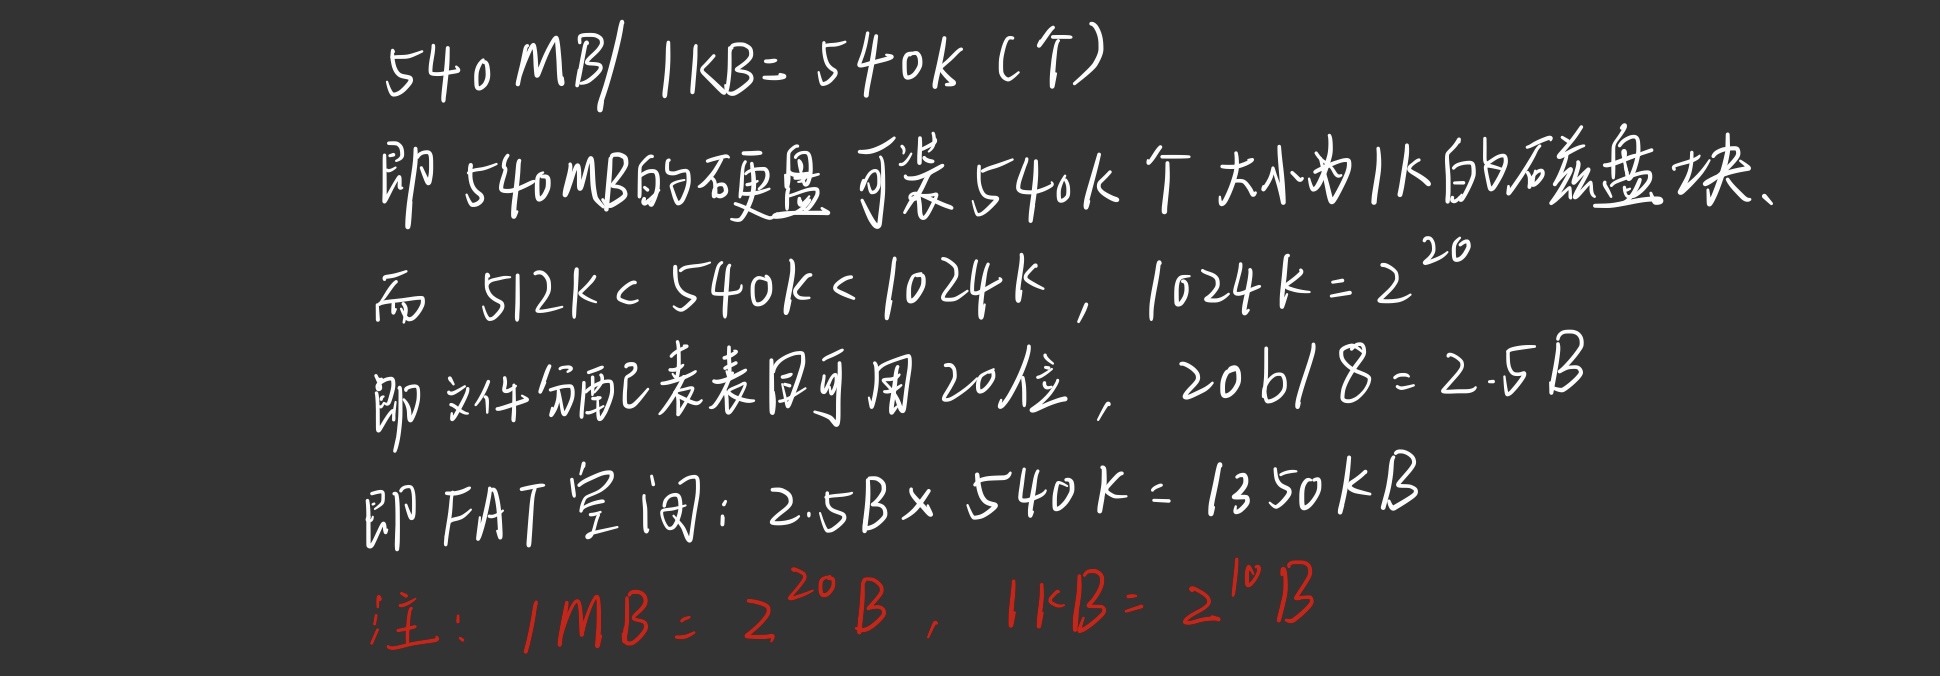 540MB/1KB=540K(个)
即540MB的硬盘可装540K个大小为1K的磁盘块、
而 512K<540K<1024K, 1024K=2^20
即文件分配表表目可用20位, 20b/8=2.5B
即FAT空间:2.5B×540K=1350KB
注:1MB=2^20B, 1KB=2^10B